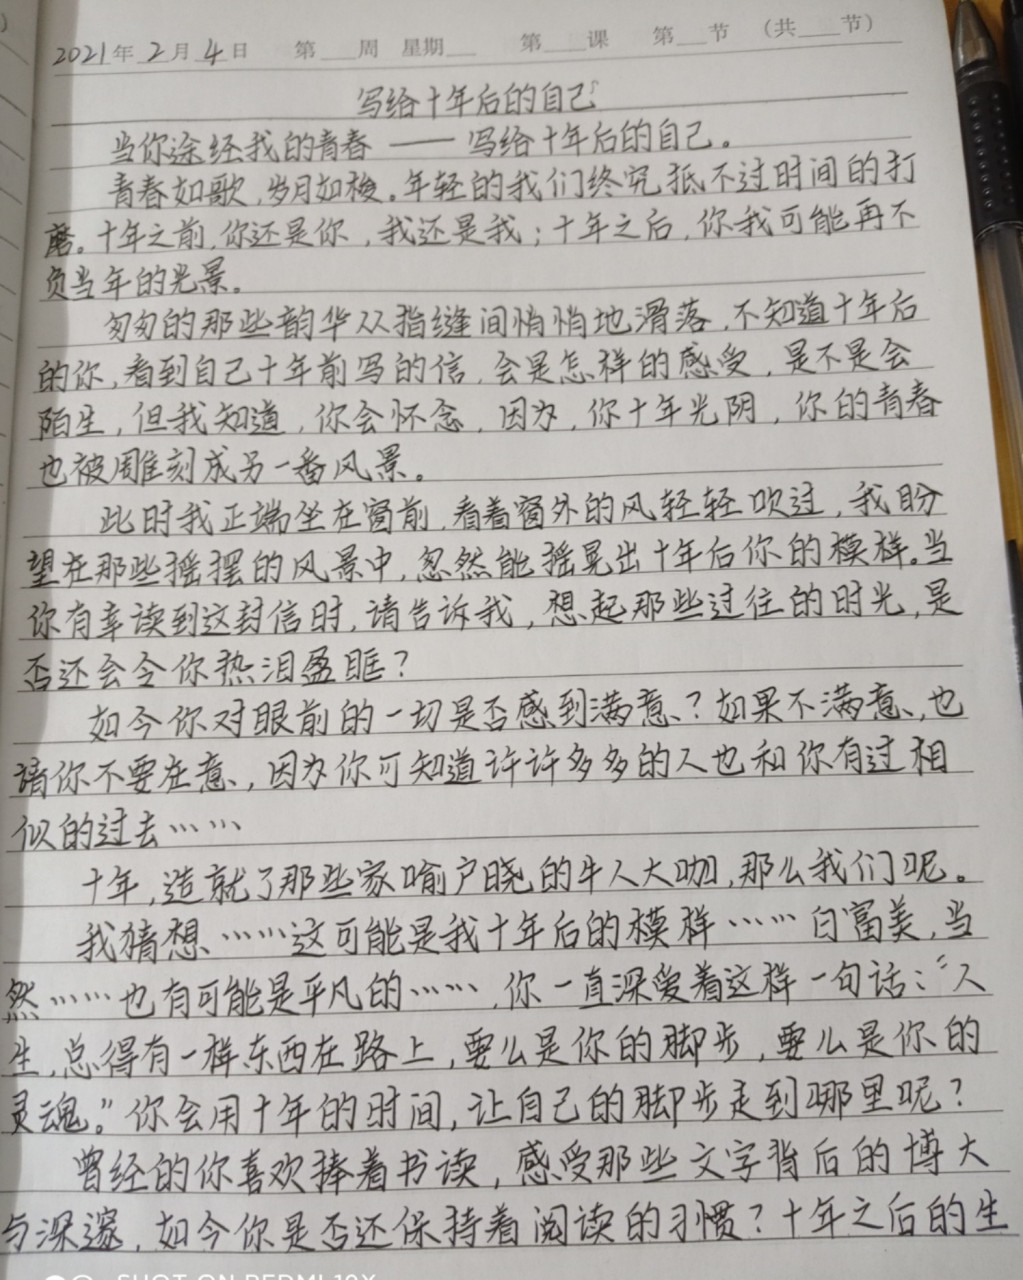 2021年2月4日 第 周 星期 第 课 第 节 (共 节)
写给十年后的自己
当你途经我的青春 —— 写给十年后的自己。
青春如歌,岁月如梭。年轻的我们终究抵不过时间的打
磨。十年之前,你还是你,我还是我;十年之后,你我可能再不
负当年的光景。
匆匆的那些韵华从指缝间悄悄地滑落,不知道十年后
的你,看到自己十年前写的信,会是怎样的感受,是不是会
陌生,但我知道,你会怀念,因为,你十年光阴,你的青春
也被雕刻成另一番风景。
此时我正端坐在窗前,看着窗外的风轻轻吹过,我盼
望在那些摇摆的风景中,忽然能摇晃出十年后你的模样。当
你有幸读到这封信时,请告诉我,想起那些过往的时光,是
否还会令你热泪盈眶?
如今你对眼前的一切是否感到满意?如果不满意,也
请你不要在意,因为你可知道许许多多的人也和你有过相
似的过去……
十年,造就了那些家喻户晓的牛人大咖,那么我们呢。
我猜想……这可能是我十年后的模样……白富美,当
然……也有可能是平凡的……,你一直深爱着这样一句话:“人
生,总得有一样东西在路上,要么是你的脚步,要么是你的
灵魂。”你会用十年的时间,让自己的脚步走到哪里呢?
曾经的你喜欢捧着书读,感受那些文字背后的博大
与深邃,如今你是否还保持着阅读的习惯?十年之后的生
SHOT ON REDMI 10X